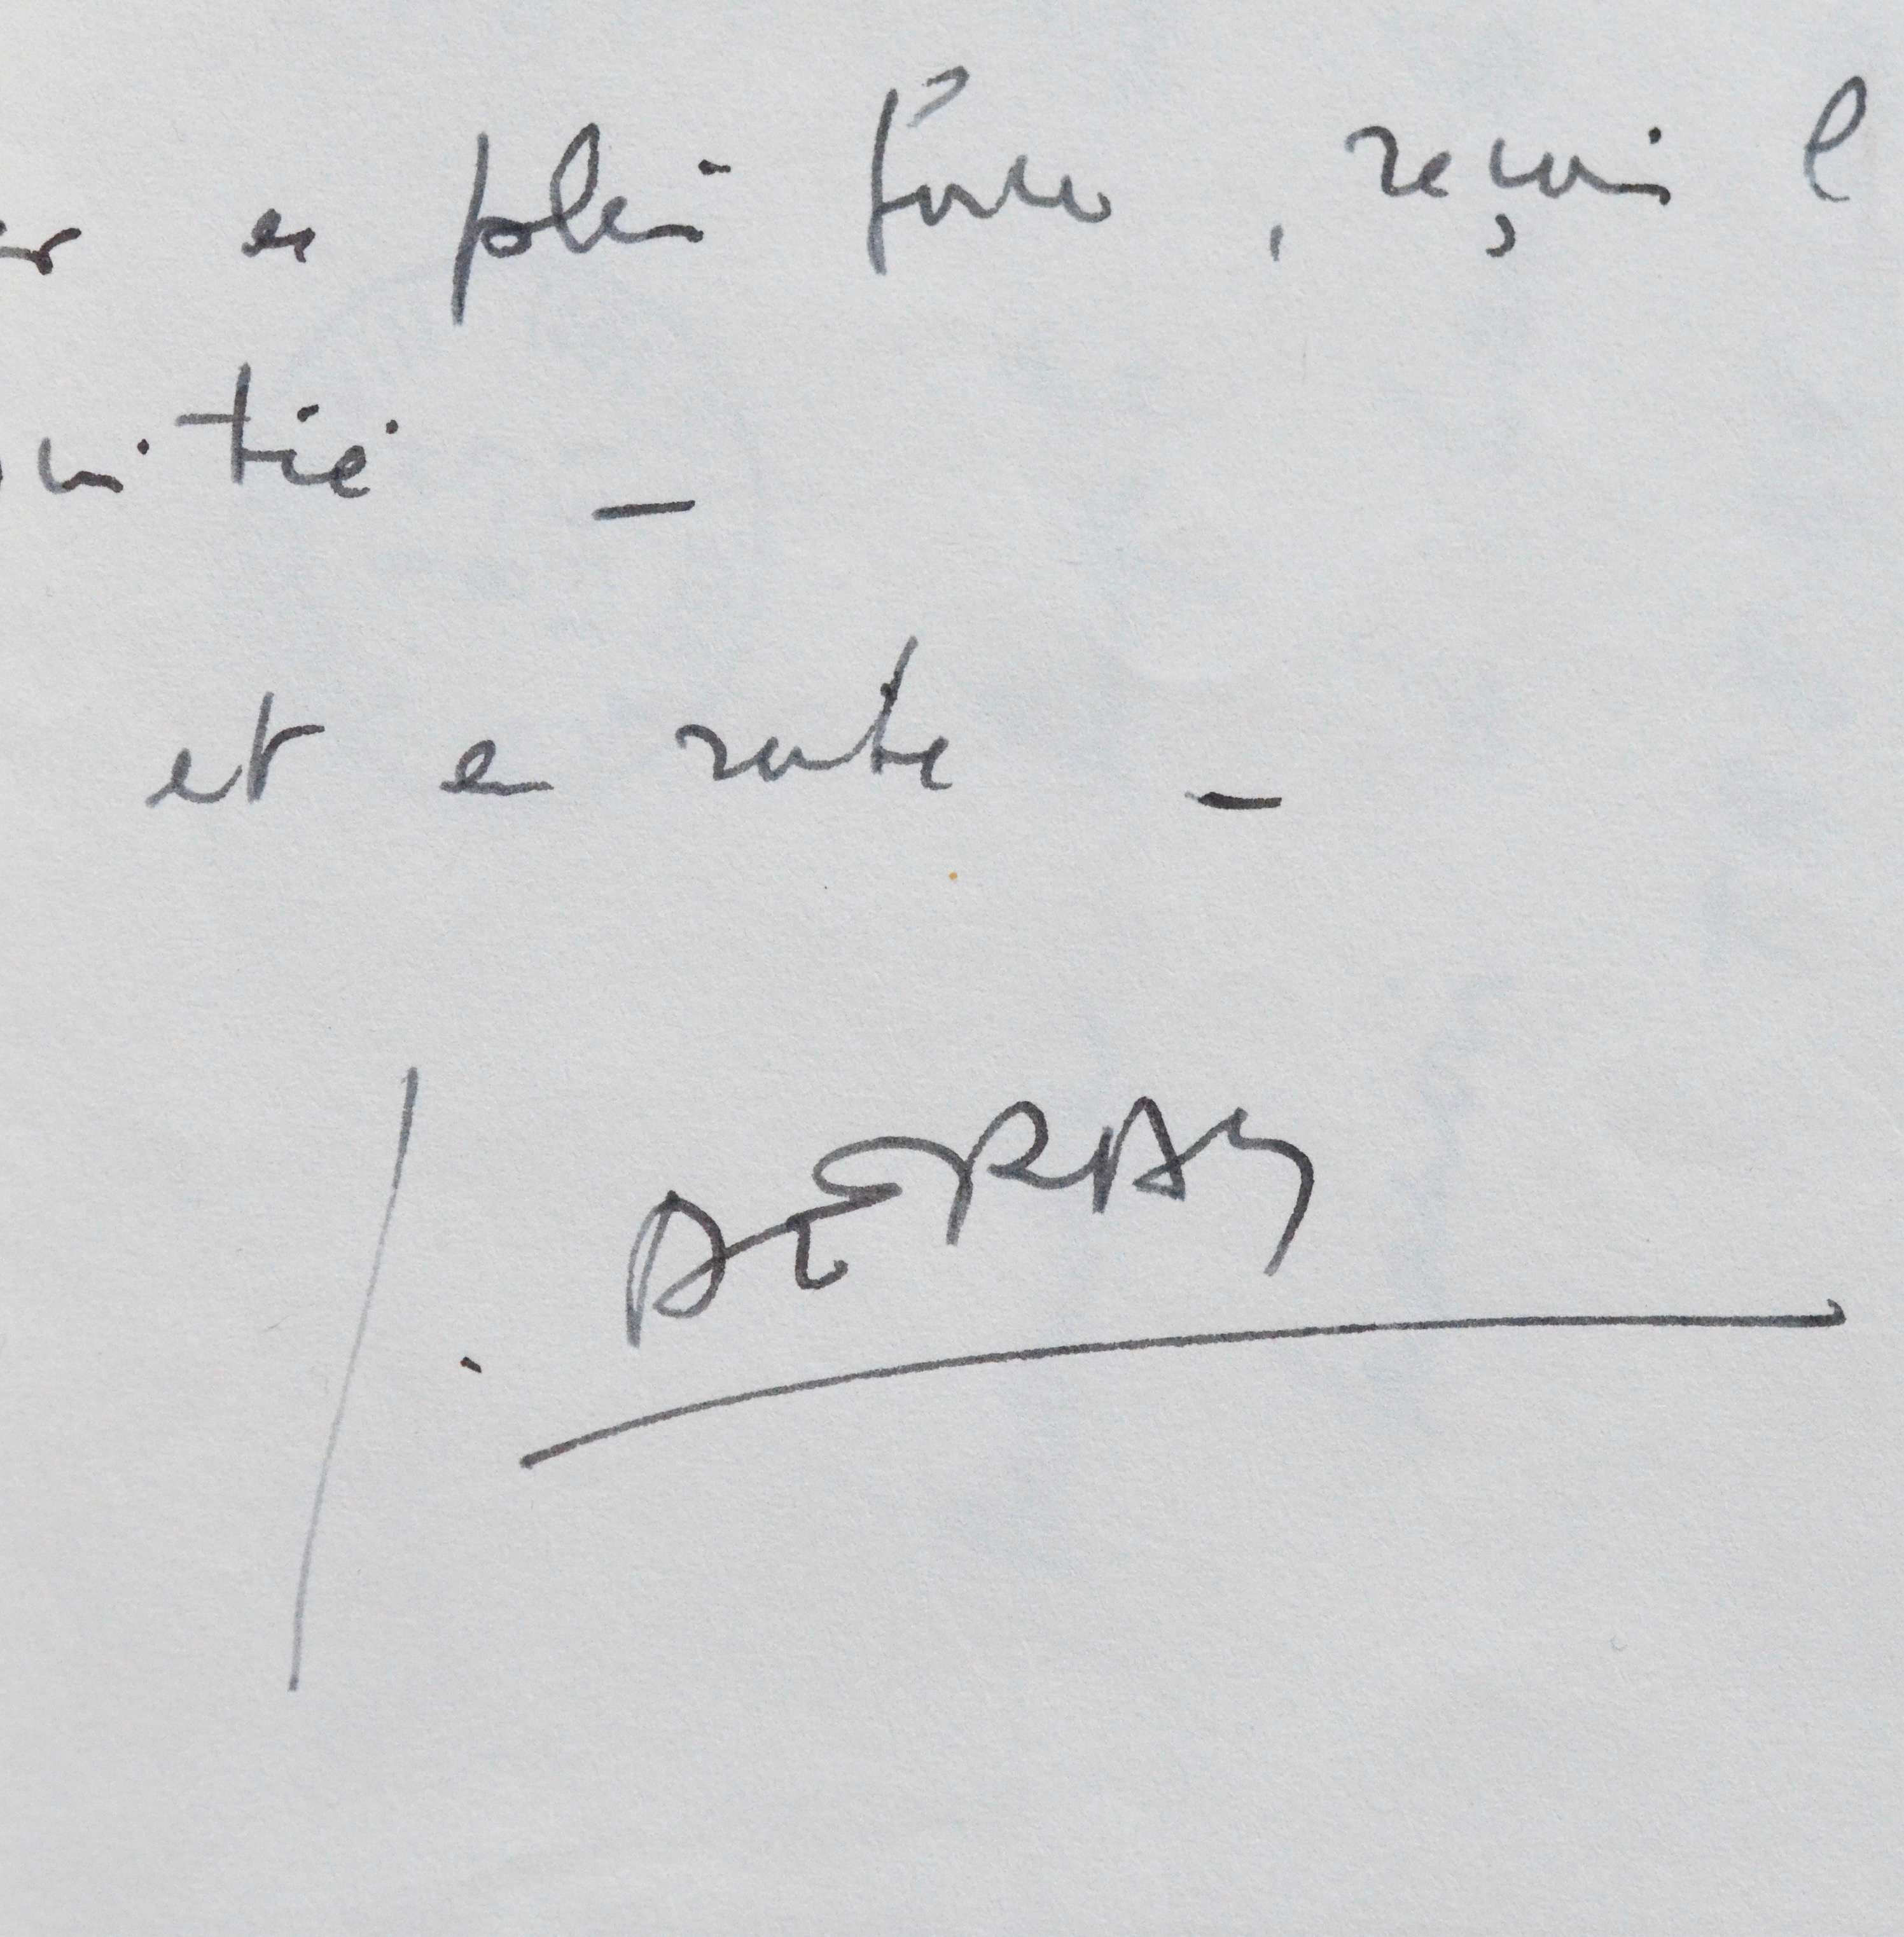 er en plein force, reçois l
mitié –
et en route –
J. DERAY